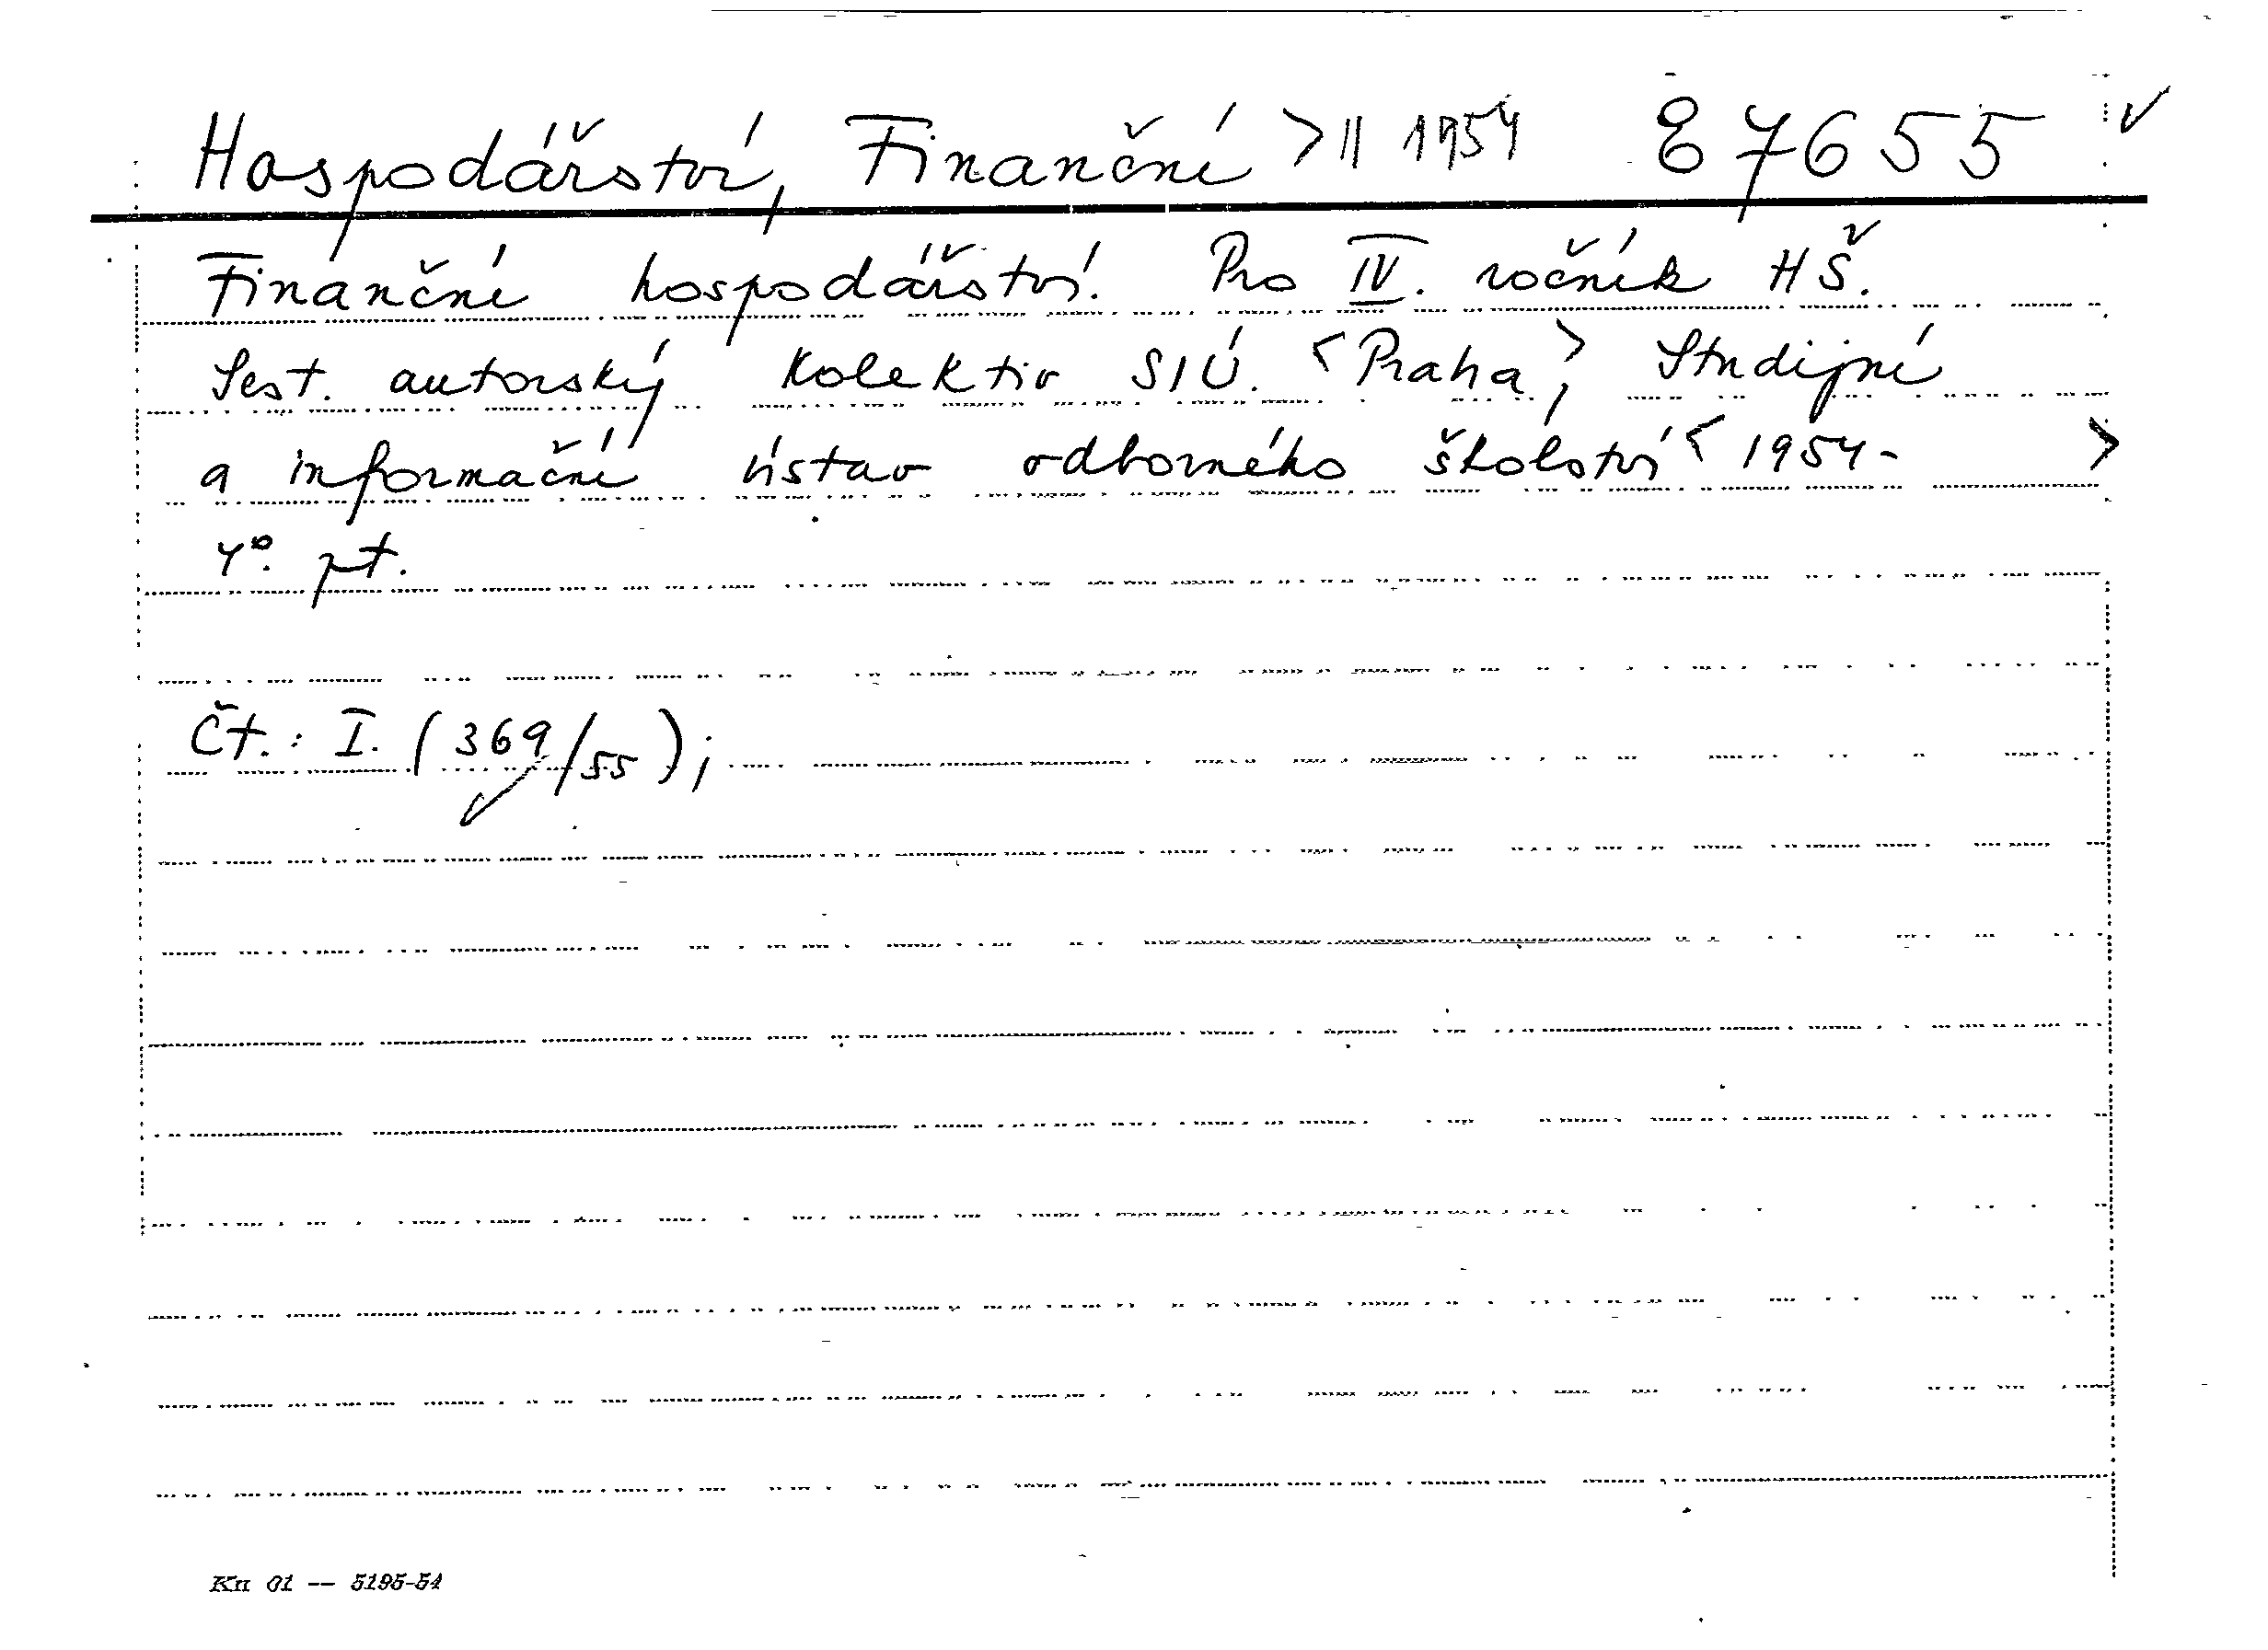 Hospodářství, Finanční >|| 1954 E7655 ✓
Finanční hospodářství. Pro IV. ročník HŠ.
Sest. autorský kolektiv SIÚ. <Praha>, Studijní
a informační ústav odborného školství <1954- >
4°. pt.
Čt.: I. (369/55);
Kn 01 -- 5195-54